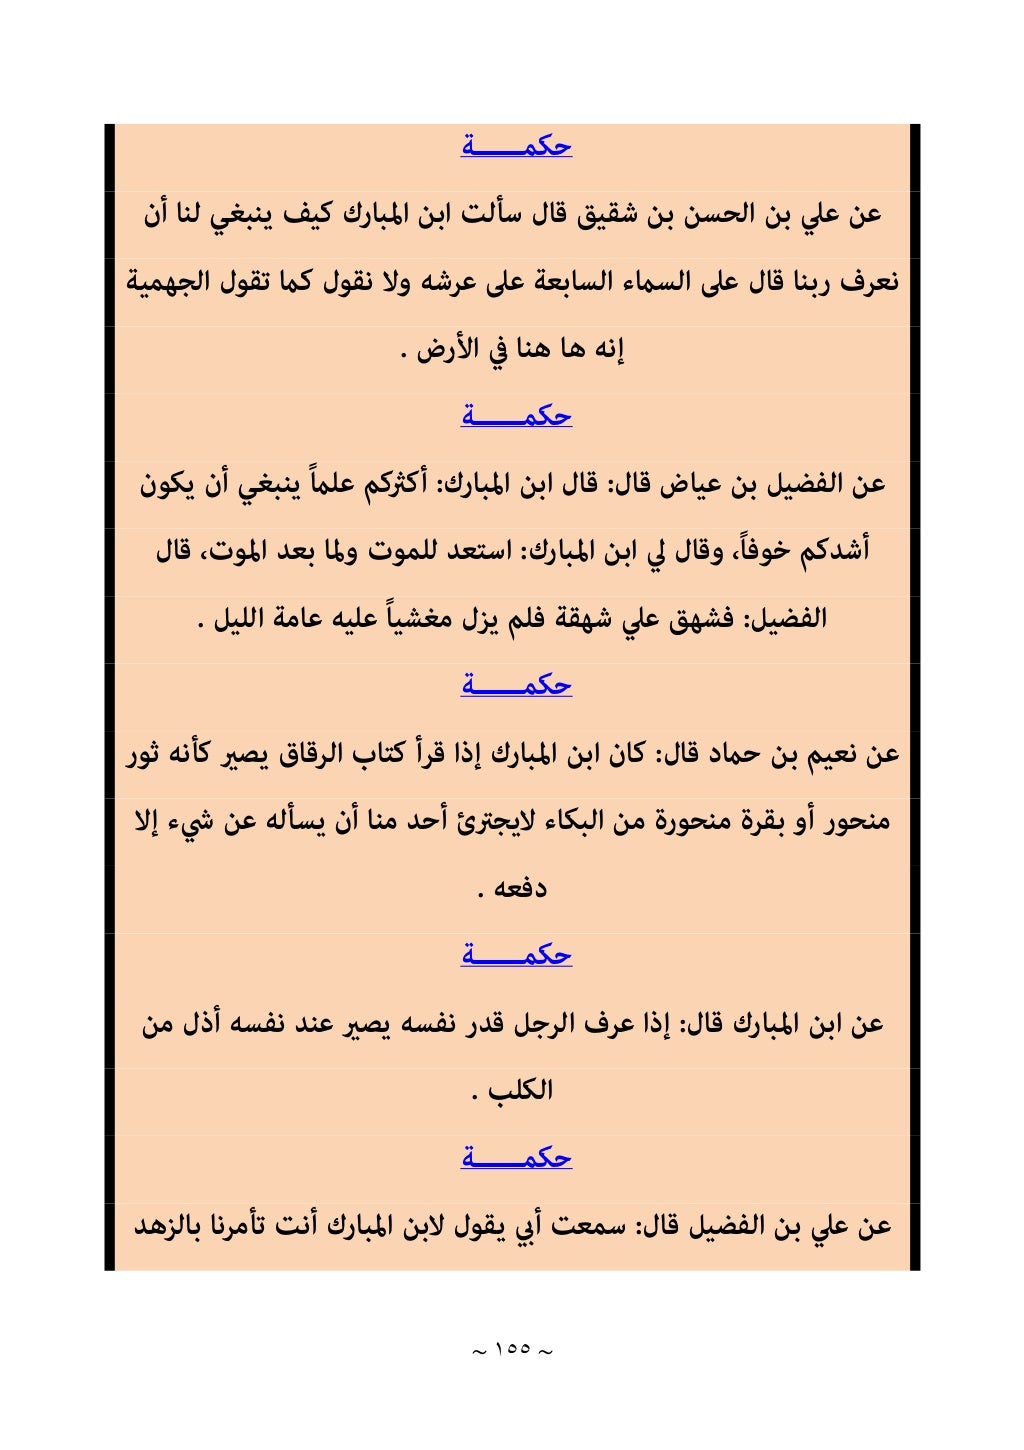 حكمــــــة
عن علي بن الحسن بن شقيق قال سألت ابن المبارك كيف ينبغي لنا أن
نعرف ربنا قال على السماء السابعة على عرشه ولا نقول كما تقول الجهمية
إنه ها هنا في الأرض .
حكمــــــة
عن الفضيل بن عياض قال: قال ابن المبارك: أكثركم علماً ينبغي أن يكون
أشدكم خوفاً، وقال لي ابن المبارك: استعد للموت ولما بعد الموت، قال
الفضيل: فشهق علي شهقة فلم يزل مغشياً عليه عامة الليل .
حكمــــــة
عن نعيم بن حماد قال: كان ابن المبارك إذا قرأ كتاب الرقاق يصير كأنه ثور
منحور أو بقرة منحورة من البكاء لايجترئ أحد منا أن يسأله عن شيء إلا
دفعه .
حكمــــــة
عن ابن المبارك قال: إذا عرف الرجل قدر نفسه يصير عند نفسه أذل من
الكلب .
حكمــــــة
عن علي بن الفضيل قال: سمعت أبي يقول لابن المبارك أنت تأمرنا بالزهد
~ ١٥٥ ~